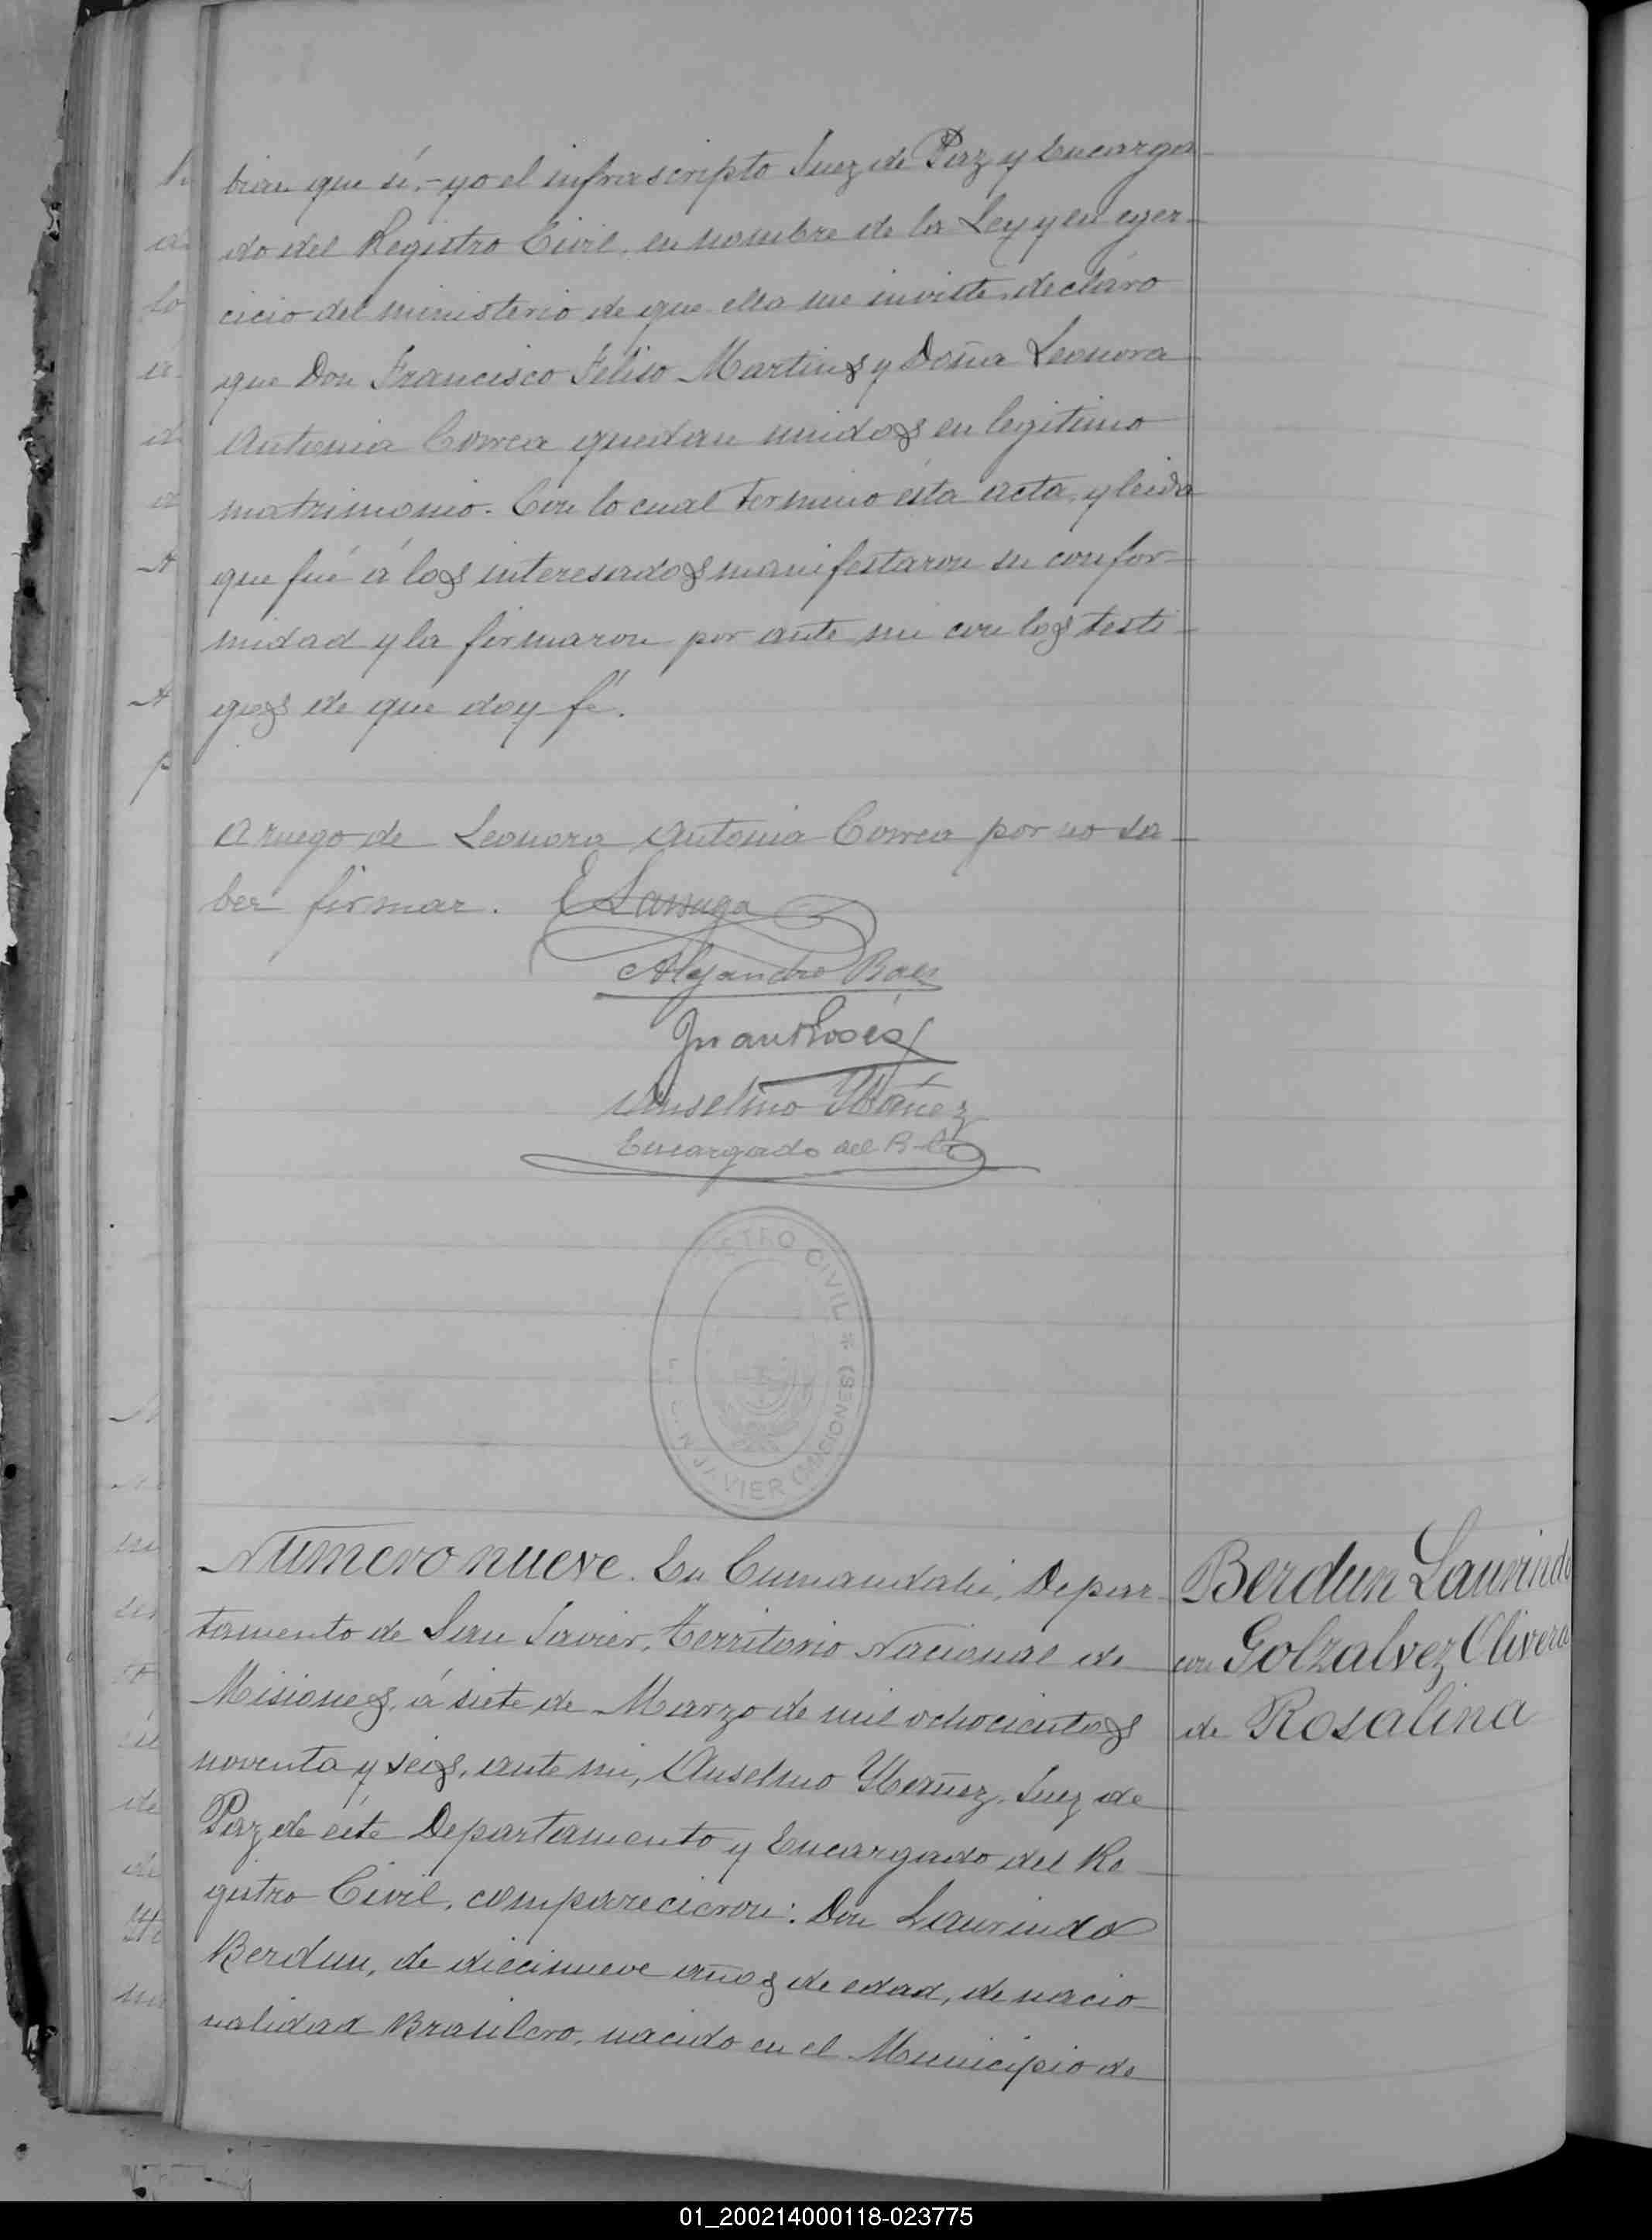 bian que sí,- yo el infrascripto Juez de Paz y Encarga-
do del Registro Civil, en nombre de la Ley y en ejer-
cicio del ministerio de que ella me inviste, declaro
que Don Francisco Feliso Martins y Doña Leonora
Antonia Correa quedan unidos en legitimo
matrimonio. Con lo cual termino ésta acta, y leida
que fué á los interesados manifestaron su confor-
midad y la firmaron por ante mi con los testi-
gos de que doy fé.
A ruego de Leonora Antonia Correa por no sa-
ber firmar. E
Alejandro Baes
Juan
Anselmo Ybáñez
Encargado del R. C.
REGISTRO CIVIL * (MISIONES)
SAN JAVIER
Numero nueve. En Cumandahi, Depar-
tamento de San Javier, Territorio Nacional de
Misiones, á siete de Marzo de mil ochocientos
noventa y seis, ante mi, Anselmo Ybañez, Juez de
Paz de éste Departamento y Encargado del Re-
gistro Civil, comparecieron: Don Laurindo
Berdun, de diecinueve años de edad, de nacio-
nalidad Brasilero, nacido en el Municipio de
Berdun Laurindo
con Golzalvez Olivera
de Rosalina
01_200214000118-023775